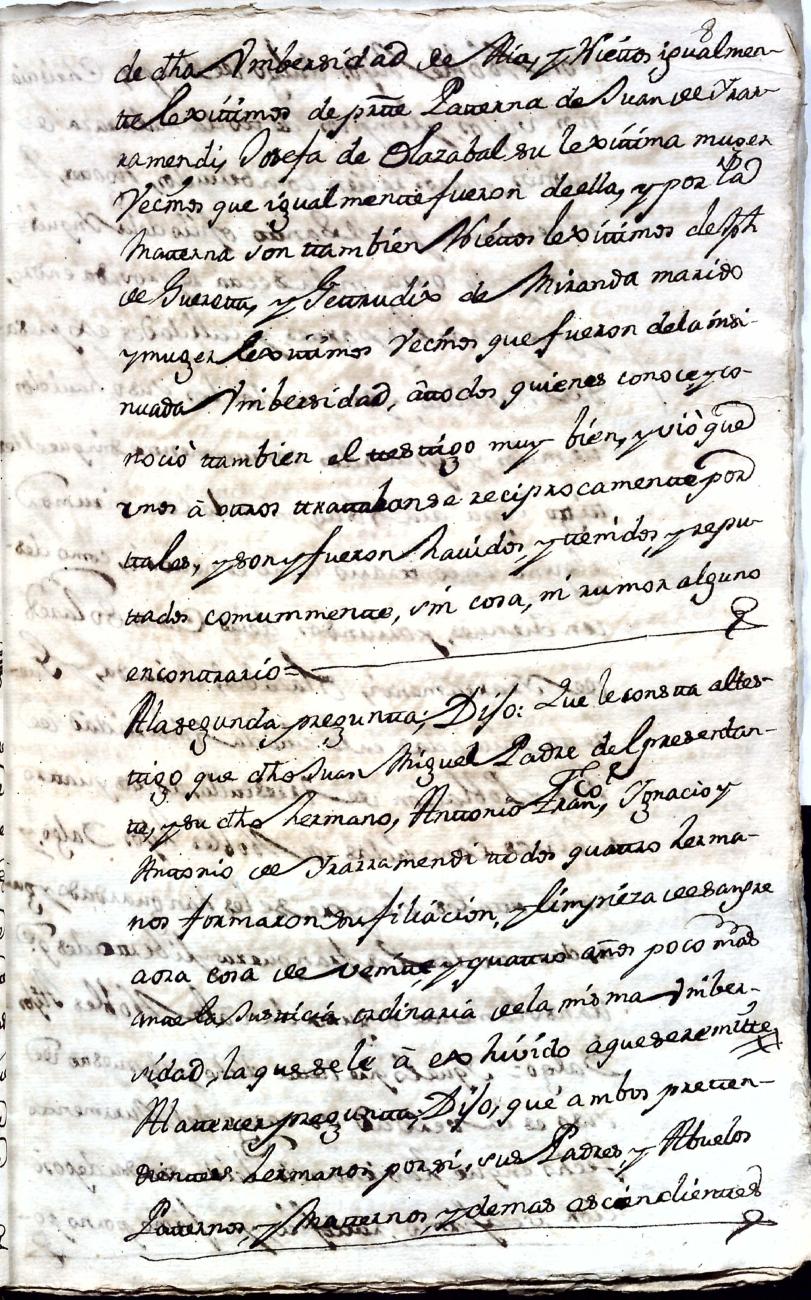 8
de dha Vnibersidad de Alza, y Niettos igualmen-
tte lexittimos de partte Patterna de Juan de Yrar-
ramendi, Josefa de Olazabal su lexittima muger
Vecinos que igualmentte fueron de ella, y por la
Matterna son ttambien Niettos lexittimos de Jph
de Gueretta, y Gettrudix de Miranda marido
y muger lexittimos Vecinos que fueron de la insi-
nuada Vnibersidad, à ttodos quienes conoce, y co-
nociò ttambien el ttesttigo muy bien, y viò que
vnos â ottros ttrattabanse reciprocamentte por
ttales, y son y fueron havidos, y ttenidos, y repu-
ttados comunmentte, sin cosa, ni rumor alguno
enconttrario=
A la segunda preguntta; Dijo: Que le constta al ttes-
ttigo que dho Juan Miguel Padre del presenttan-
tte, y su dho hermano, Anttonio Franco, Ygnacio y
Anttonio de Yrarramendi ttodos quattro herma-
nos formaron su filiacion, y limpieza de sangre
aora cosa de veintte y quattro años poco mas
antte la Justticia ordinaria de la misma Vniber-
sidad, la que se le â exhivido a que se remitte
A la ttercer preguntta; Dijo, que ambos pretten-
dienttes hermanos por si, sus Padres y Abuelos
Patternos, y Matternos, y demas ascendienttes